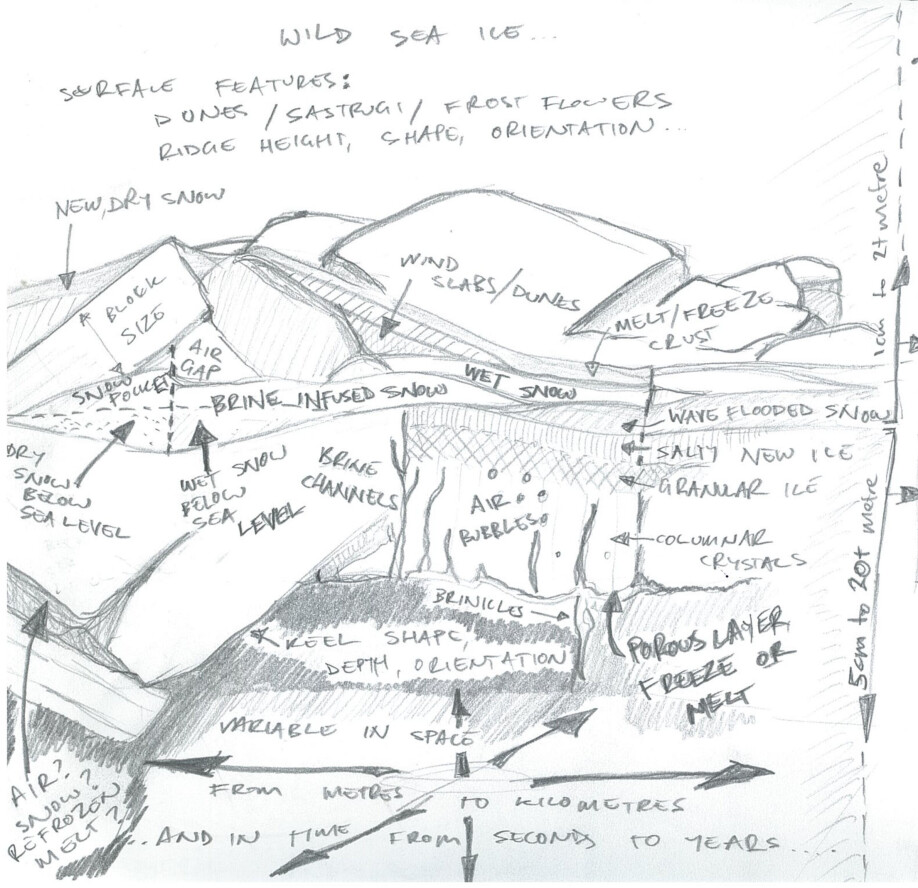 WILD SEA ICE...
SURFACE FEATURES:
DUNES / SASTRUGI / FROST FLOWERS
RIDGE HEIGHT, SHAPE, ORIENTATION...
NEW, DRY SNOW
BLOCK
SIZE
WIND
SLABS/DUNES
MELT/FREEZE
CRUST
AIR
GAP
SNOW
POCKET
BRINE INFUSED SNOW
WET SNOW
WAVE FLOODED SNOW
SALTY NEW ICE
GRANULAR ICE
COLUMNAR
CRYSTALS
DRY
SNOW
BELOW
SEA LEVEL
WET SNOW
BELOW
SEA LEVEL
BRINE
CHANNELS
AIR
BUBBLES
BRINICLES
KEEL SHAPE,
DEPTH, ORIENTATION
POROUS LAYER
FREEZE OR
MELT
1cm to 2+ metre
5cm to 20+ metre
AIR?
SNOW?
REFROZEN
MELT?
VARIABLE IN SPACE
FROM METRES TO KILOMETRES
...AND IN TIME FROM SECONDS TO YEARS.....